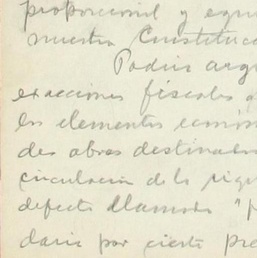 proporcional y equi
nuestra Constituc
Podría arg
exacciones fiscales
los elementos econó
des obras destinada
circulación de la riq
defecto llamado "p
daria por cierto pre